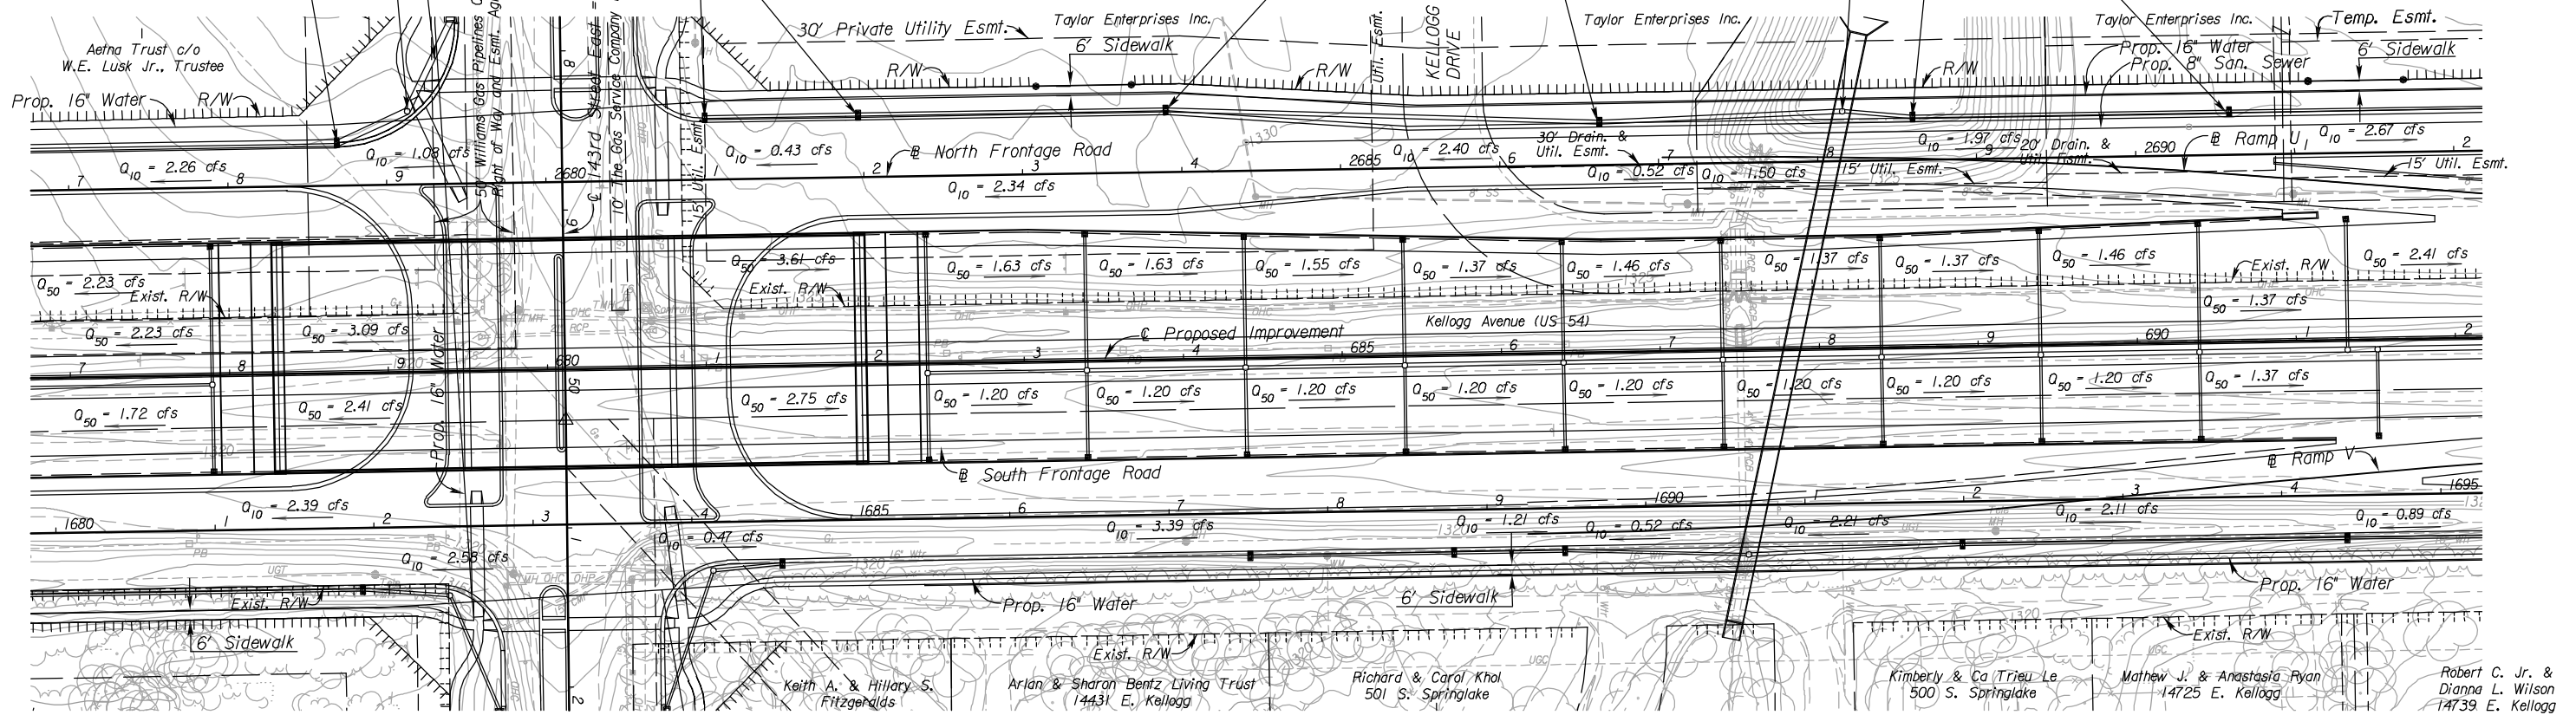 Aetna Trust c/o
W.E. Lusk Jr., Trustee
Prop. 16" Water
R/W
50' Williams Gas Pipelines
Right of Way and Esmt.
℄ 143rd Street East =
10' The Gas Service Company
15' Util. Esmt.
30' Private Utility Esmt.
Taylor Enterprises Inc.
6' Sidewalk
R/W
R/W
Util. Esmt.
KELLOGG
DRIVE
Taylor Enterprises Inc.
R/W
Taylor Enterprises Inc.
Temp. Esmt.
Prop. 16" Water
Prop. 8" San. Sewer
6' Sidewalk
Q10 = 2.26 cfs
Q10 = 1.08 cfs
Q10 = 0.43 cfs
℄ North Frontage Road
Q10 = 2.34 cfs
1330
Q10 = 2.40 cfs
30' Drain. &
Util. Esmt.
Q10 = 0.52 cfs
Q10 = 1.50 cfs
15' Util. Esmt.
Q10 = 1.97 cfs
20' Drain. &
Util. Esmt.
℄ Ramp U
Q10 = 2.67 cfs
15' Util. Esmt.
7 8 9 2680 1 2 3 4 2685 6 7 8 9 2690 1 2
8" SS
MH
Q50 = 2.23 cfs
Exist. R/W
Q50 = 3.61 cfs
Exist. R/W
Q50 = 1.63 cfs
Q50 = 1.63 cfs
Q50 = 1.55 cfs
Q50 = 1.37 cfs
Q50 = 1.46 cfs
Q50 = 1.37 cfs
Q50 = 1.37 cfs
Q50 = 1.46 cfs
Exist. R/W
Q50 = 2.41 cfs
Q50 = 1.37 cfs
Q50 = 2.23 cfs
Q50 = 3.09 cfs
Prop. 16" Water
℄ Proposed Improvement
Kellogg Avenue (US 54)
7 8 9 680 1 2 3 4 685 6 7 8 9 690 1 2
8
9
50
1
2
Q50 = 1.72 cfs
Q50 = 2.41 cfs
Q50 = 2.75 cfs
Q50 = 1.20 cfs
Q50 = 1.20 cfs
Q50 = 1.20 cfs
Q50 = 1.20 cfs
Q50 = 1.20 cfs
Q50 = 1.20 cfs
Q50 = 1.20 cfs
Q50 = 1.20 cfs
Q50 = 1.37 cfs
℄ South Frontage Road
℄ Ramp V
1680 1 2 3 4 1685 6 7 8 9 1690 1 2 3 4 1695
Q10 = 2.39 cfs
Q10 = 2.58 cfs
Q10 = 0.47 cfs
Q10 = 3.39 cfs
Q10 = 1.21 cfs
Q10 = 0.52 cfs
Q10 = 2.21 cfs
Q10 = 2.11 cfs
Q10 = 0.89 cfs
PB
UGT
1320
16" Wtr
Exist. R/W
6' Sidewalk
Prop. 16" Water
6' Sidewalk
Prop. 16" Water
Exist. R/W
Exist. R/W
UGC
UGC
1320
Keith A. & Hillary S.
Fitzgeralds
Arlan & Sharon Bentz Living Trust
14431 E. Kellogg
Richard & Carol Khol
501 S. Springlake
Kimberly & Ca Trieu Le
500 S. Springlake
Mathew J. & Anastasia Ryan
14725 E. Kellogg
Robert C. Jr. &
Dianna L. Wilson
14739 E. Kellogg